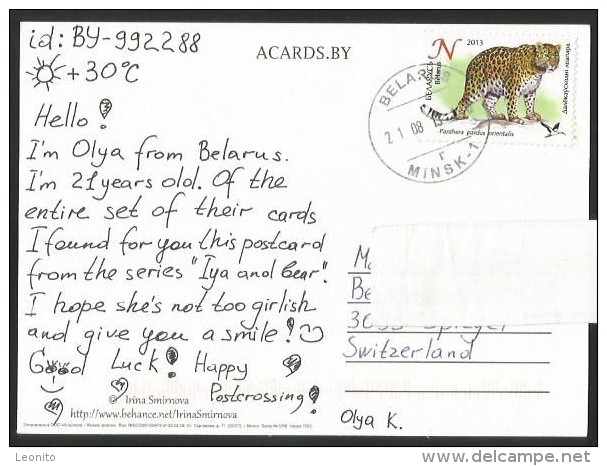 id: BY-992288
+30°C
ACARDS.BY
Hello!
I'm Olya from Belarus.
I'm 21 years old. Of the
entire set of their cards
I found for you this postcard
from the series "Iya and bear".
I hope she's not too girlish
and give you a smile!
Good Luck! Happy
Postcrossing!
© Irina Smirnova
http://www.behance.net/IrinaSmirnova
N 2013
БЕЛАРУСЬ
Belarus
Далёкаўсходні леапард
Panthera pardus orientalis
BELARUS
21 08 13
MINSK-1
Switzerland
Olya K.
Leonito
delcampe.net